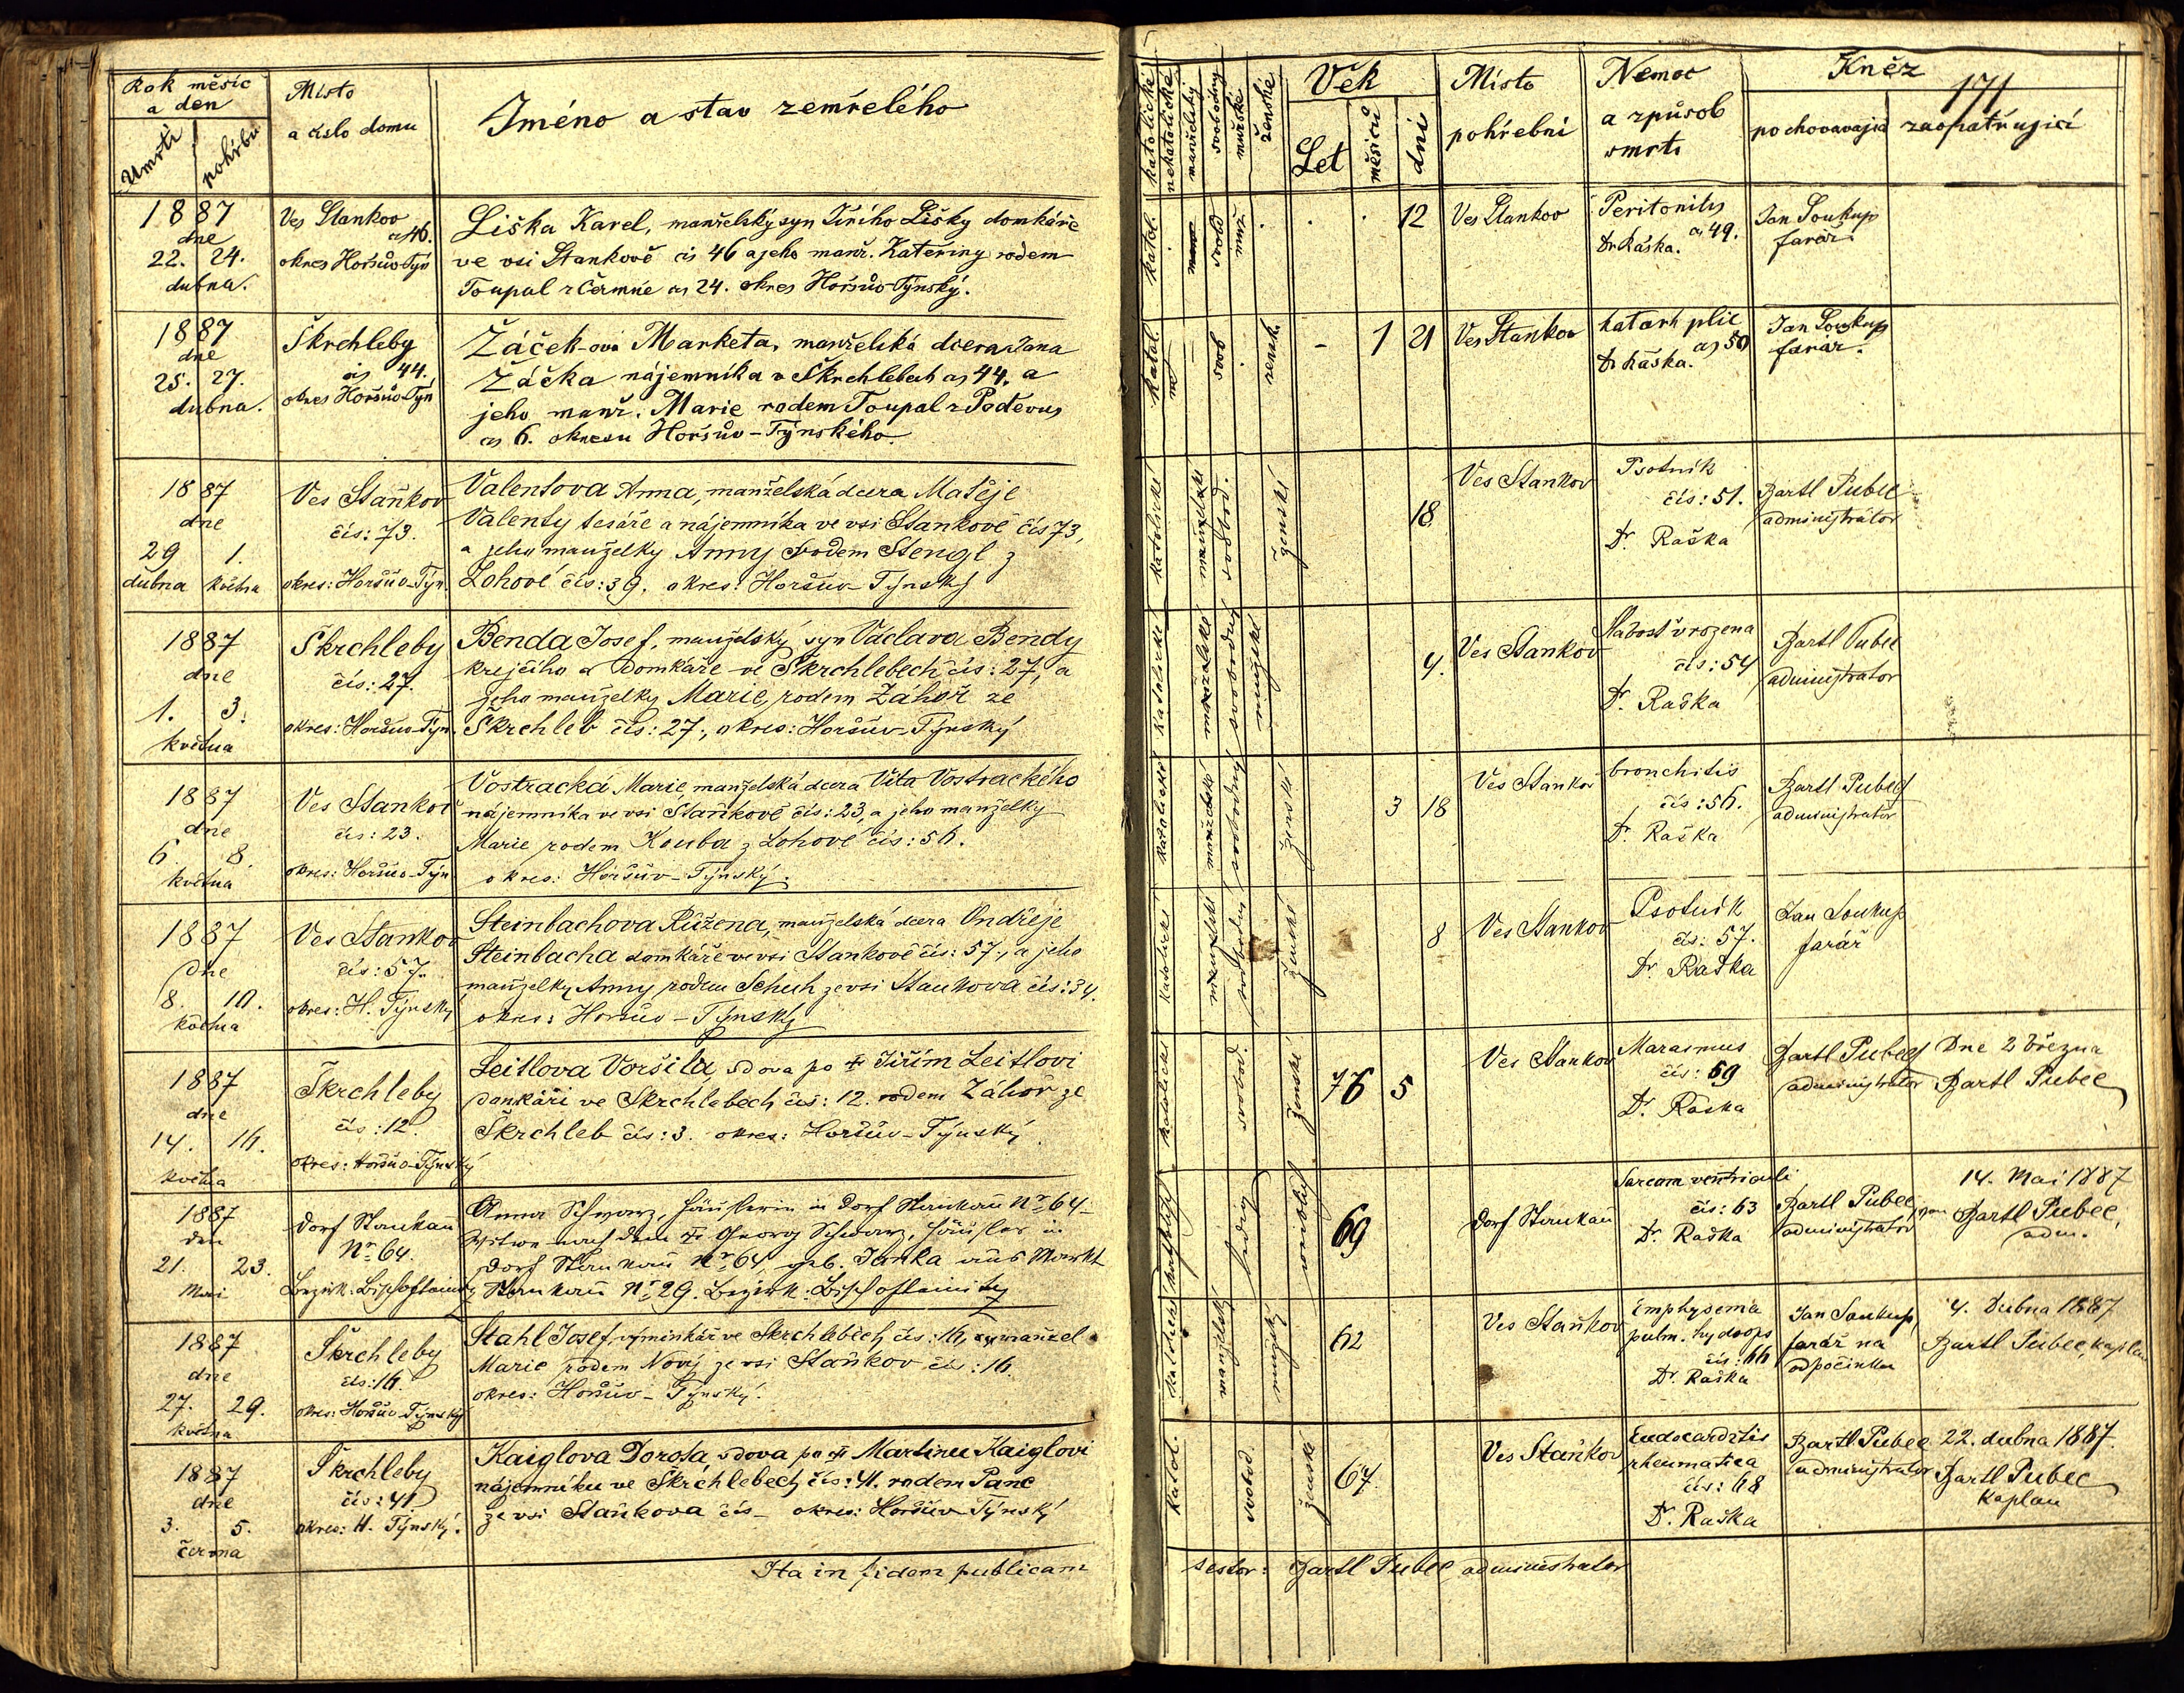 171
Rok měsíc
a den
Umrtí
pohřbu
Místo
a číslo domu
Jméno a stav zemřelého
katolické
nekatolické
manželský
svobodný
mužské
ženské
Věk
Let
měsíců
dní
Místo
pohřební
Nemoc
a způsob
smrti
Kněz
pochovavající
zaopatřující
1887
dne
22. 24.
dubna.
Ves Stankov
čs 46.
okres Horšův-Týn
Liška Karel, manželský syn Jiřího Lišky domkáře
ve vsi Stankově čis 46 a jeho manž. Kateřiny rodem
Toupal z Čermné čs 24. okres Horšův-Týnský.
katol.
svob
muž
12
Ves Stankov
Peritonitis
čs 49.
Dr Raška.
Jan Soukup
farář.
1887
dne
25. 27.
dubna.
Škrchleby
čis 44.
okres Horšův-Týn
Žáček-ová Marketa, manželská dcera Jana
Žáčka nájemníka v Škrchlebech čs 44. a
jeho manž. Marie rodem Toupal z Poděvus
čs 6. okresu Horšův-Týnského.
katol.
svob
žensk.
- 1 21
Ves Stankov
katarh plic
čs 50
Dr Raška.
Jan Soukup
farář.
1887
dne
29 1.
dubna května
Ves Staňkov
čís: 73.
okres: Horšův-Týn.
Valentova Anna, manželská dcera Matěje
Valenty tesáře a nájemníka ve vsi Stankově čís 73,
a jeho manželky Anny rodem Stengl z
Lohové čís: 39. okres: Horšův-Týnský
katolické
manželské
svobod.
ženské
18
Ves Stankov
Psotník
čís: 51.
Dr. Raška
Bartl Pubec
administrátor
1887
dne
1. 3.
května
Škrchleby
čís: 27.
okres: Horšův-Týn.
Benda Josef, manželský syn Václava Bendy
krejčího a domkáře ve Škrchlebech čís: 27, a
jeho manželky Marie, rodem Záhoř ze
Škrchleb čís: 27., okres: Horšův-Týnský
katolické
manželské
svobodný
mužské
4.
Ves Stankov
Slabost vrozena
čís: 54
Dr. Raška
Bartl Pubec
administrator
1887
dne
6. 8.
května
Ves Stankov
čís: 23.
okres: Horšův-Týn
Vostracká Marie, manželská dcera Víta Vostrackého
nájemníka ve vsi Staňkově čís: 23, a jeho manželky
Marie rodem Kouba z Lohové čís: 56.
okres: Horšův-Týnský.
katolické
manželské
svobodný
ženské
3 18
Ves Stankov
bronchitis
čís: 56.
Dr. Raška
Bartl Pubec
administrator
1887
dne
8. 10.
května
Ves Staňkov
čís: 57.
okres: H. Týnský
Steinbachova Růžena, manželská dcera Ondřeje
Steinbacha domkáře ve vsi Stankově čís: 57., a jeho
manželky Anny rodem Schuh ze vsi Stankova čís: 34.
okres: Horšův-Týnský
katolické
manželské
svobodný
ženské
8
Ves Stankov
Psotník
čís: 57.
Dr. Raška
Jan Soukup
farář
1887
dne
14. 16.
května
Škrchleby
čís: 12.
okres: Horšův-Týnský
Leitlova Voršila, vdova po † Jiřím Leitlovi
domkáři ve Škrchlebech čís: 12. rodem Záhoř ze
Škrchleb čís: 3. okres: Horšův-Týnský.
katolické
svobod.
ženské
76 5
Ves Stankov
Marasmus
čís: 59
Dr. Raška
Bartl Pubec
administrator
Dne 2 března
Bartl Pubec
1887
den
21. 23.
Mai
Dorf Stankau
Nr. 64.
Bezirk: Bischofteinitz
Anna Schwarz, Häuslerin in Dorf Stankau Nr. 64
Witwe nach dem † Georg Schwarz, Häusler in
Dorf Stankau Nr. 64, geb. Janka aus Markt
Stankau Nr. 29. Bezirk: Bischofteinitz
katholisch
ledig
weiblich
69
Dorf Stankau
Sarcom ventriculi
čís: 63
Dr. Raška
Bartl Pubec
administrator
14. Mai 1887
Bartl Pubec,
adm.
1887
dne
27. 29.
května
Škrchleby
čís: 16.
okres: Horšův-Týnský
Stahl Josef, výminkář ve Škrchlebech čís: 16, manžel
Marie rodem Nový ze vsi Staňkov čís: 16.
okres: Horšův-Týnský.
katolické
manželský
mužský
62
Ves Staňkov
Emphysema
pulm. hydrops
čís: 66
Dr. Raška
Jan Soukup,
farář na
odpočinku
4. Dubna 1887
Bartl Pubec, kaplan
1887
dne
3. 5.
června
Škrchleby
čís: 41
okres: H. Týnský.
Kaiglova Dorota, vdova po † Martinu Kaiglovi
nájemníku ve Škrchlebech čís: 41. rodem Panc
ze vsi Staňkova čís - okres: Horšův-Týnský
katol.
svobod.
ženské
67.
Ves Staňkov
Endocarditis
rheumatica
čís: 68
Dr. Raška
Bartl Pubec
administrator
22. dubna 1887.
Bartl Pubec
kaplan
Ita in fidem publicam
testor: Bartl Pubec, administrator